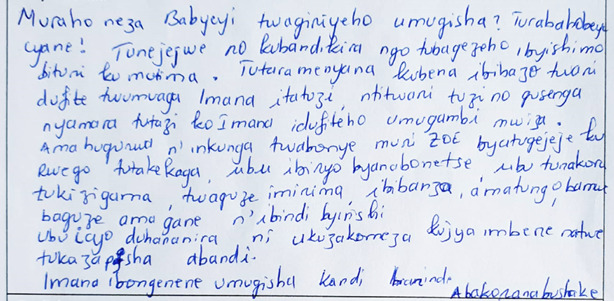 Muraho neza Babyeyi twagiriyeho umugisha? Turabahobeye
cyane! Tunejejwe no kubandikira ngo tubagezeho, ibyishimo
bituri ku mutima. Tutaramenyana kubena ibibazo twari
dufite twumvaga Imana itatuzi, ntitwari tuzi no gusenga
nyamara tutazi ko Imana idufiteho umugambi mwiza.
Amahugurwa n'inkunga twabonye muri ZOE byatugejeje ku
Rwego tutakekaga, ubu ibiryo byarabonetse, ubu turakora
tukizigama, twaguze imirima, ibibanza, amatungo, bamwe
baguze amagare n'ibindi byinshi
ubu icyo duharanira ni ukuzakomeza kujya imbere natwe
tukazafasha abandi.
Imana ibongerere umugisha kandi ibarinde
Abakoranabushake